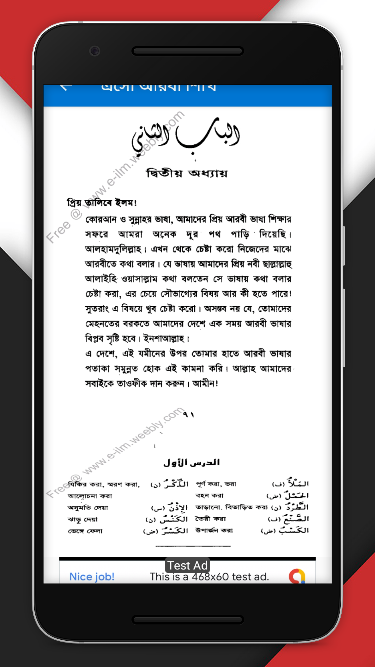 এসো আরবী শিখি
الباب الثاني
দ্বিতীয় অধ্যায়
প্রিয় তালিবে ইলম!
কোরআন ও সুন্নাহর ভাষা, আমাদের প্রিয় আরবী ভাষা শিক্ষার
সফরে আমরা অনেক দূর পথ পাড়ি দিয়েছি।
আলহামদুলিল্লাহ। এখন থেকে চেষ্টা করো নিজেদের মাঝে
আরবীতে কথা বলার। যে ভাষায় আমাদের প্রিয় নবী ছাল্লাল্লাহু
আলাইহি ওয়াসাল্লাম কথা বলতেন সে ভাষায় কথা বলার
চেষ্টা করা, এর চেয়ে সৌভাগ্যের বিষয় আর কী হতে পারে!
সুতরাং এ বিষয়ে খুব চেষ্টা করো। অসম্ভব নয় যে, তোমাদের
মেহনতের বরকতে আমাদের দেশে এক সময় আরবী ভাষার
বিপ্লব সৃষ্টি হবে। ইনশাআল্লাহ।
এ দেশে, এই যমীনের উপর তোমার হাতে আরবী ভাষার
পতাকা সমুন্নত হোক এই কামনা করি। আল্লাহ আমাদের
সবাইকে তাওফীক দান করুন। আমীন!
Free @ www.e-ilm.weebly.com
৯১
Free @ www.e-ilm.weebly.com
الدرس الأول
যিকির করা, স্মরণ করা, الذِّكْرُ (ن) পূর্ণ করা, ভরা المَلْأُ (ف)
আলোচনা করা বহন করা الحَمْلُ (ض)
অনুমতি দেয়া الإِذْنُ (س) তাড়ানো, বিতাড়িত করা الطَّرْدُ (ن)
ঝাড়ু দেয়া الكَنْسُ (ن) তৈরী করা الصُّنْعُ (ف)
ভেঙ্গে ফেলা الكَسْرُ (ض) উপার্জন করা الكَسْبُ (ض)
Test Ad
Nice job! This is a 468x60 test ad.